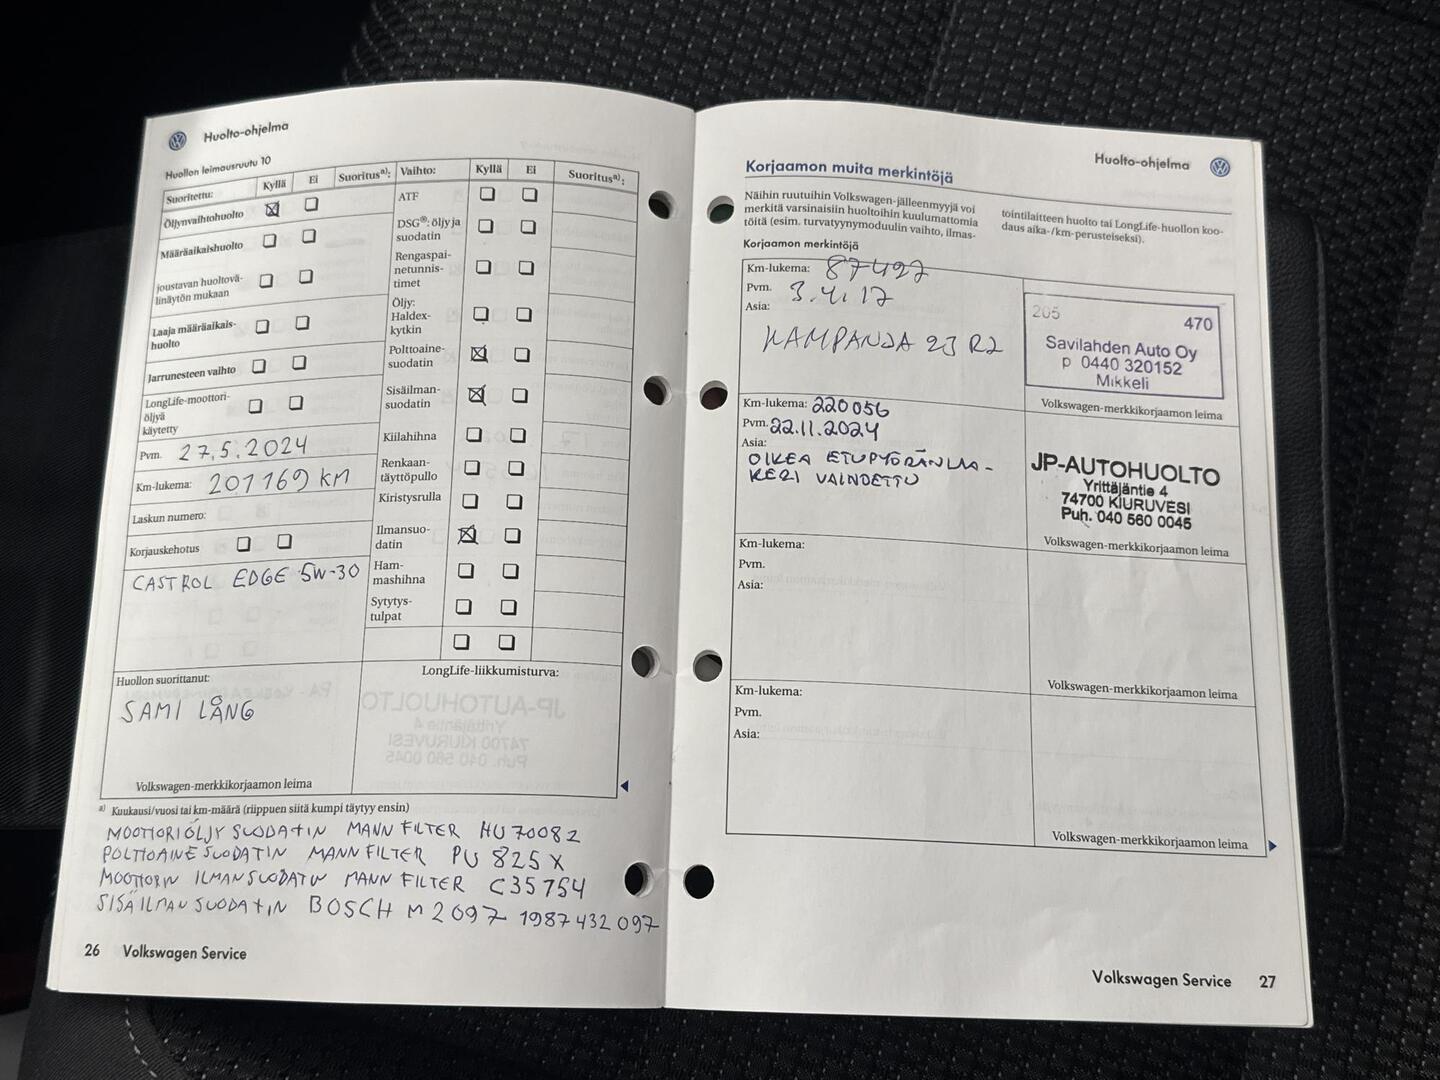 Huolto-ohjelma
Huollon leimausruutu 10
Suoritettu: Kyllä Ei Suoritusa):
Öljynvaihtohuolto
Määräaikaishuolto
joustavan huoltovä-
linäytön mukaan
Laaja määräaikais-
huolto
Jarrunesteen vaihto
LongLife-moottori-
öljyä
käytetty
Pvm. 27.5.2024
Km-lukema: 201169 KM
Laskun numero:
Korjauskehotus
CASTROL EDGE 5W-30
Vaihto: Kyllä Ei Suoritusa):
ATF
DSG®: öljy ja
suodatin
Rengaspai-
netunnis-
timet
Öljy:
Haldex-
kytkin
Polttoaine-
suodatin
Sisäilman-
suodatin
Kiilahihna
Renkaan-
täyttöpullo
Kiristysrulla
Ilmansuo-
datin
Ham-
mashihna
Sytytys-
tulpat
Huollon suorittanut:
SAMI LÅNG
Volkswagen-merkkikorjaamon leima
LongLife-liikkumisturva:
a) Kuukausi/vuosi tai km-määrä (riippuen siitä kumpi täytyy ensin)
MOOTTORIÖLJY SUODATIN MANN FILTER HU7008Z
POLTTOAINE SUODATIN MANN FILTER PU 825 X
MOOTTORIN ILMANSUODATIN MANN FILTER C35754
SISÄILMAN SUODATIN BOSCH M2097 1987432097
26 Volkswagen Service
Huolto-ohjelma
Korjaamon muita merkintöjä
Näihin ruutuihin Volkswagen-jälleenmyyjä voi
merkitä varsinaisiin huoltoihin kuulumattomia
töitä (esim. turvatyynymoduulin vaihto, ilmas-
tointilaitteen huolto tai LongLife-huollon koo-
daus aika-/km-perusteiseksi).
Korjaamon merkintöjä
Km-lukema: 87427
Pvm. 3.4.17
Asia:
KAMPANJA 23R2
205 470
Savilahden Auto Oy
p 0440 320152
Mikkeli
Volkswagen-merkkikorjaamon leima
Km-lukema: 220056
Pvm. 22.11.2024
Asia:
OIKEA ETUPYÖRÄNLAA-
KERI VAIHDETTU
JP-AUTOHUOLTO
Yrittäjäntie 4
74700 KIURUVESI
Puh. 040 560 0045
Volkswagen-merkkikorjaamon leima
Km-lukema:
Pvm.
Asia:
Volkswagen-merkkikorjaamon leima
Km-lukema:
Pvm.
Asia:
Volkswagen-merkkikorjaamon leima
Volkswagen Service 27